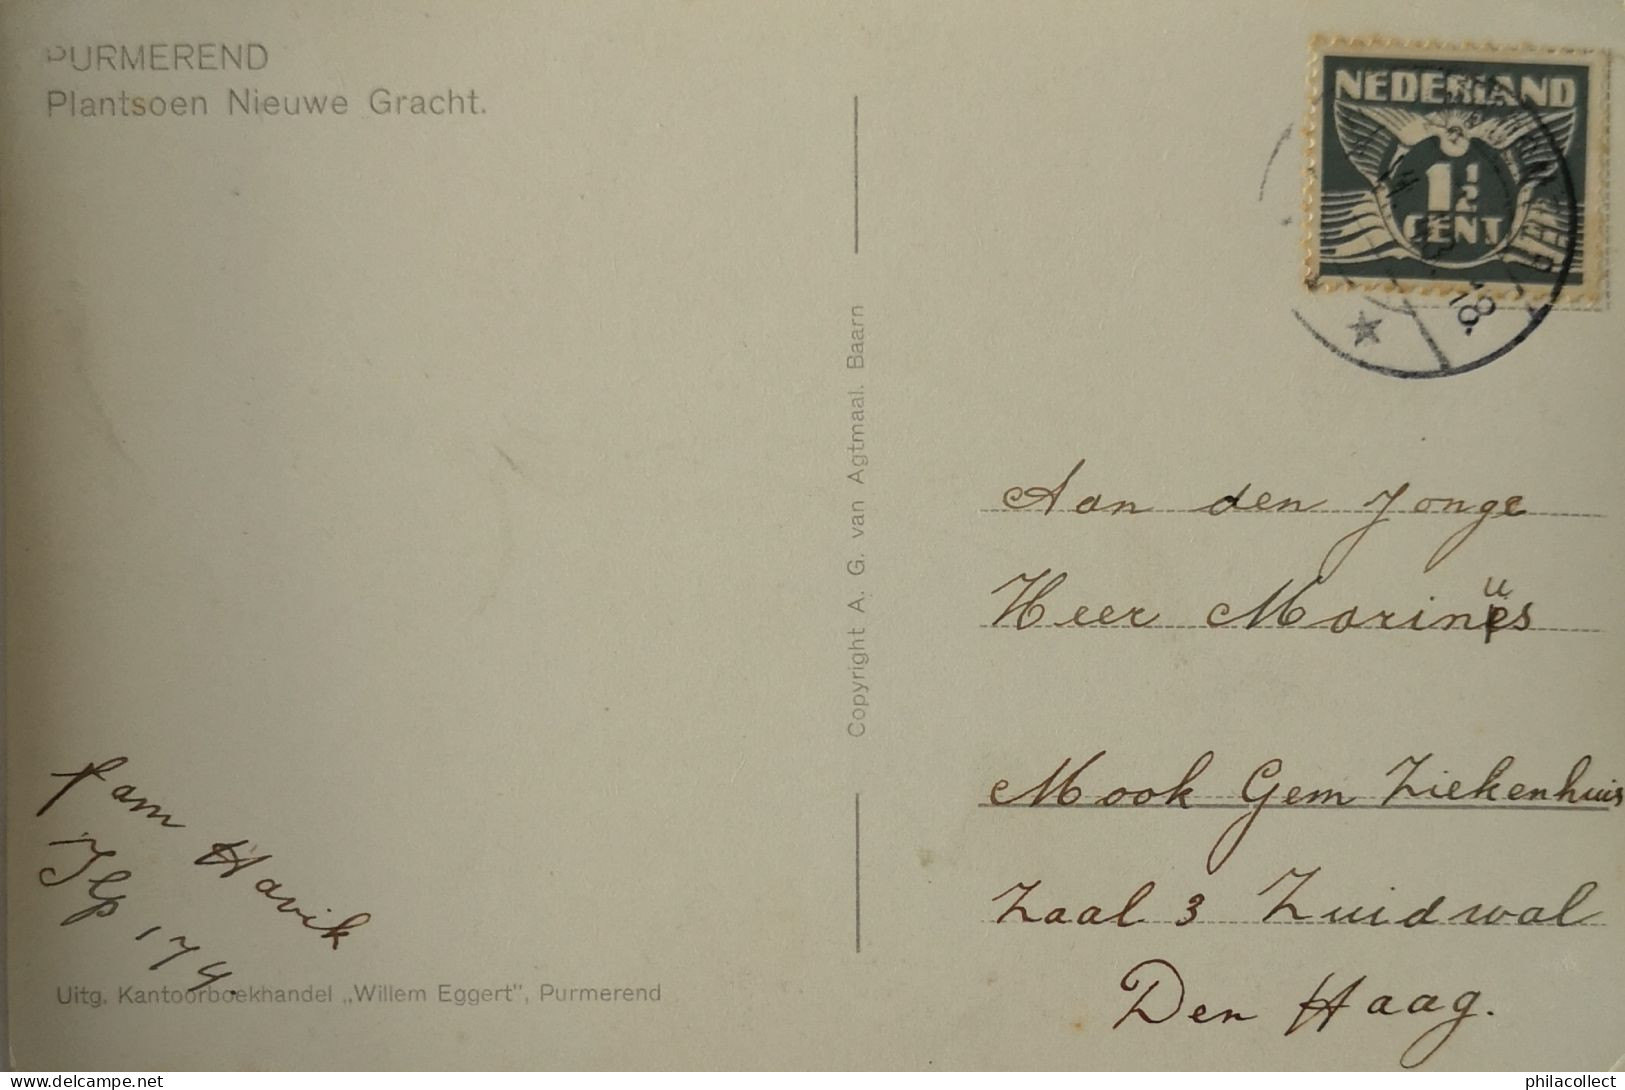 PURMEREND
Plantsoen Nieuwe Gracht.
NEDERLAND
1½
CENT
18.
Copyright A. G. van Agtmaal. Baarn
Aan den Jonge
Heer Marinus
Mook Gem Ziekenhuis
Zaal 3 Zuidwal
Den Haag.
fam Havik
Ilp 174.
Uitg. Kantoorboekhandel „Willem Eggert", Purmerend
delcampe.net
philacollect